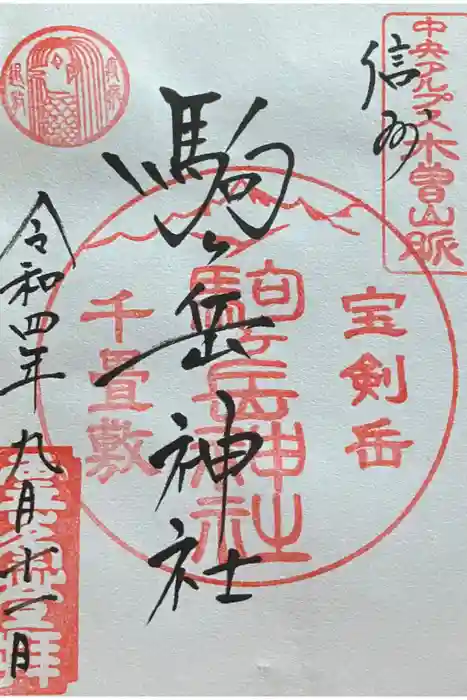 中央アルプス木曽山脈
信州
宝剣岳
駒ヶ岳神社
駒ヶ岳神社
千畳敷
疫病
退散
令和四年
九月十一日